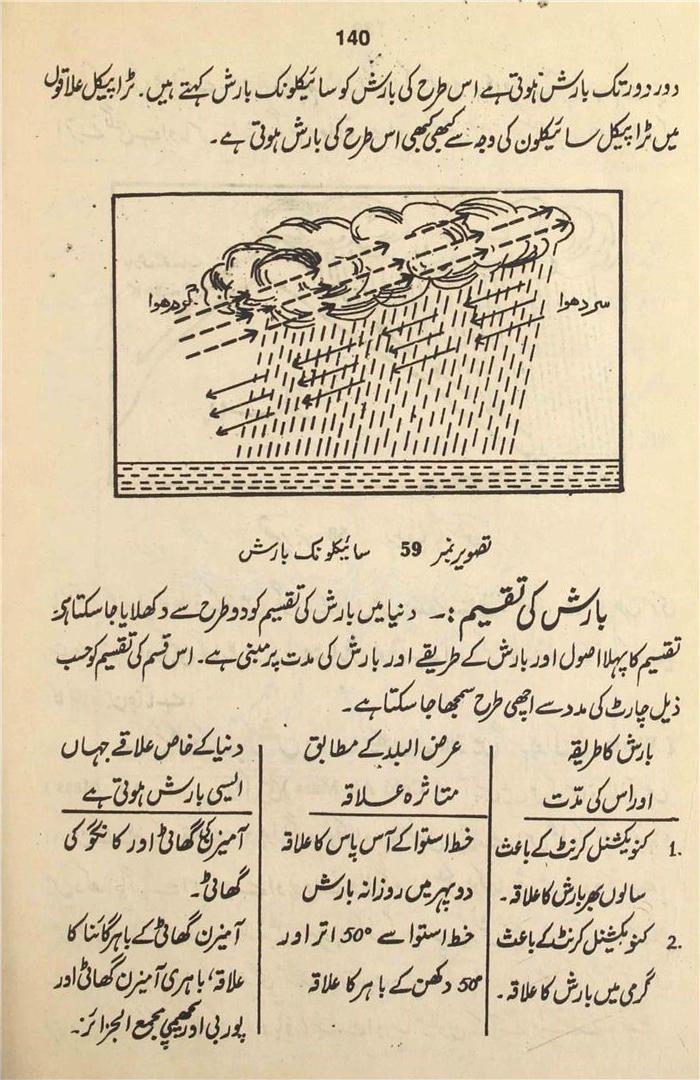 140
دور دور تک بارش ہوتی ہے اس طرح کی بارش کو سائیکلونک بارش کہتے ہیں۔ ٹراپیکل علاقوں
میں ٹراپیکل سائیکلون کی وجہ سے کبھی کبھی اس طرح کی بارش ہوتی ہے۔
سرد ھوا
گرم ھوا
تصویر نمبر 59 سائیکلونک بارش
بارش کی تقسیم :۔ دنیا میں بارش کی تقسیم کو دو طرح سے دکھلایا جا سکتا ہے۔
تقسیم کا پہلا اصول اور بارش کے طریقے اور بارش کی مدت پر مبنی ہے۔ اس قسم کی تقسیم کو حسب
ذیل چارٹ کی مدد سے اچھی طرح سمجھا جا سکتا ہے۔
بارش کا طریقہ
اور اس کی مدّت
عرض البلد کے مطابق
متاثرہ علاقہ
دنیا کے خاص علاقے جہاں
ایسی بارش ہوتی ہے
1. کنویکشنل کرنٹ کے باعث
سالوں بھر بارش کا علاقہ۔
خط استوا کے آس پاس کا علاقہ
دوپہر میں روزانہ بارش
آمیزن کی گھاٹی اور کانگو کی
گھاٹی۔
2. کنویکشنل کرنٹ کے باعث
گرمی میں بارش کا علاقہ۔
خط استوا سے 50° اتر اور
50° دکھن کے باہر کا علاقہ
آمیزن گھاٹی کے باہر گائنا کا
علاقہ، باہری آمیزن گھاٹی اور
پوربی اور پچھمی مجمع الجزائر۔